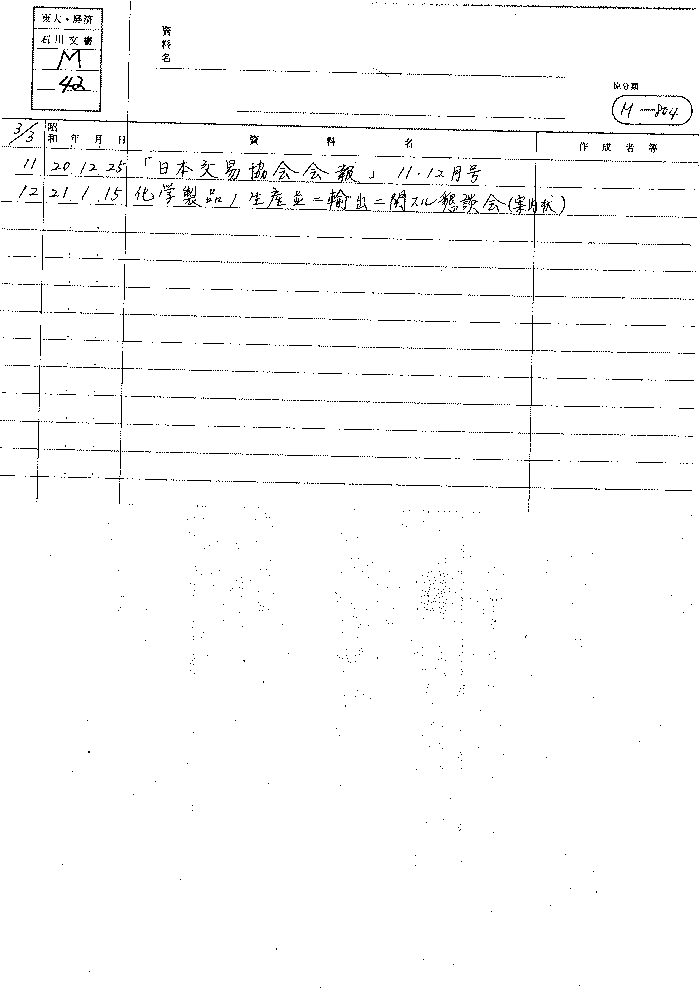 東大・経済
石川文書
M
42
資料名
旧分類
M-804
3/3 昭和 年 月 日 資料名 作成者等
11 20.12.25 「日本交易協会会報」 11・12月号
12 21.1.15 化学製品ノ生産並ニ輸出ニ関スル懇談会(案内状)